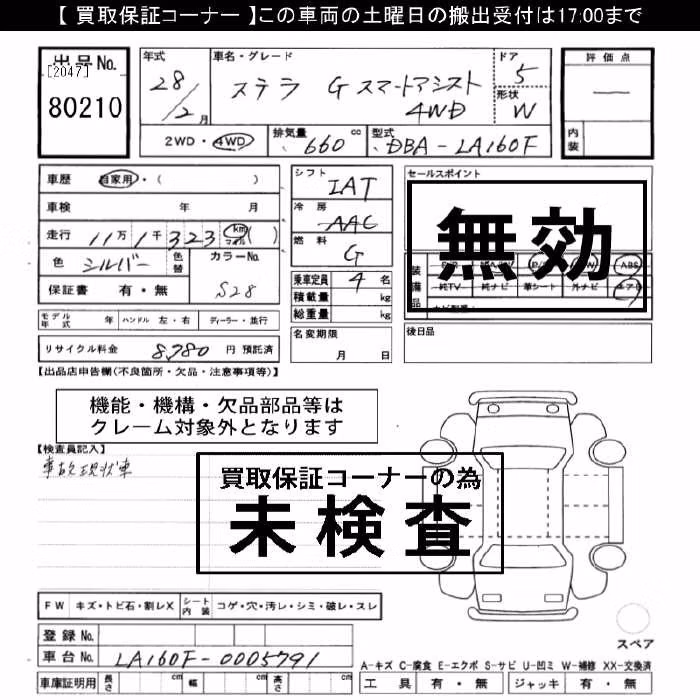 【 買取保証コーナー 】この車両の土曜日の搬出受付は17:00まで
出品No.
[2047]
80210
年式
28/2月
車名・グレード
ステラ G スマートアシスト
4WD
ドア
5
形状
W
評価点
内装
2WD・4WD
排気量 660 cc
型式 DBA-LA160F
車歴 自家用・( )
車検 年 月
走行 11万1千323 km マイル ( )
色 シルバー 色替
カラーNo.
S28
保証書 有・無
シフト
IAT
冷房
AAC
燃料
G
乗車定員 4 名
積載量 kg
総重量 kg
セールスポイント
無効
装備品
ABS
純TV 純ナビ 革シート 外ナビ エアB
モデル年式 年 ハンドル 左・右 ディーラー・並行
リサイクル料金 8,780 円 預託済
名変期限
月 日
後日品
【出品店申告欄(不良箇所・欠品・注意事項等)】
機能・機構・欠品部品等は
クレーム対象外となります
【検査員記入】
車故現状車
買取保証コーナーの為
未検査
FW キズ・トビ石・割レX シート内装 コゲ・穴・汚レ・シミ・破レ・スレ
登録No.
車台No. LA160F-0005791
車庫証明用 長さ cm 幅 cm 高さ cm
スペア
A-キズ C-腐食 E-エクボ S-サビ U-凹ミ W-補修 XX-交換済
工具 有・無 ジャッキ 有・無